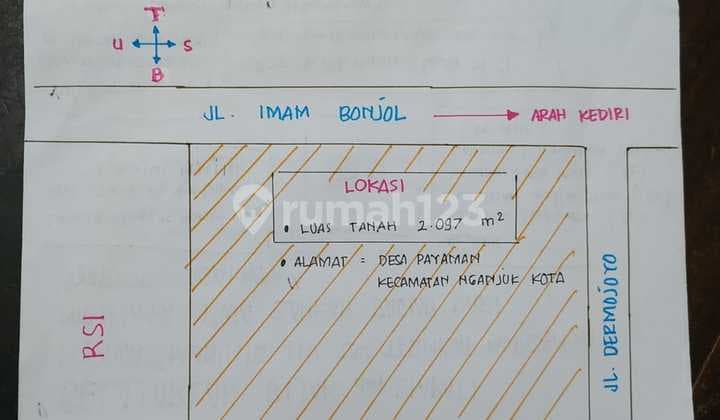 T
U S
B
JL. IMAM BONJOL ARAH KEDIRI
LOKASI
rumah123
• LUAS TANAH 2.097 m²
• ALAMAT = DESA PAYAMAN
KECAMATAN NGANJUK KOTA
RSI
JL. DERMOJOYO